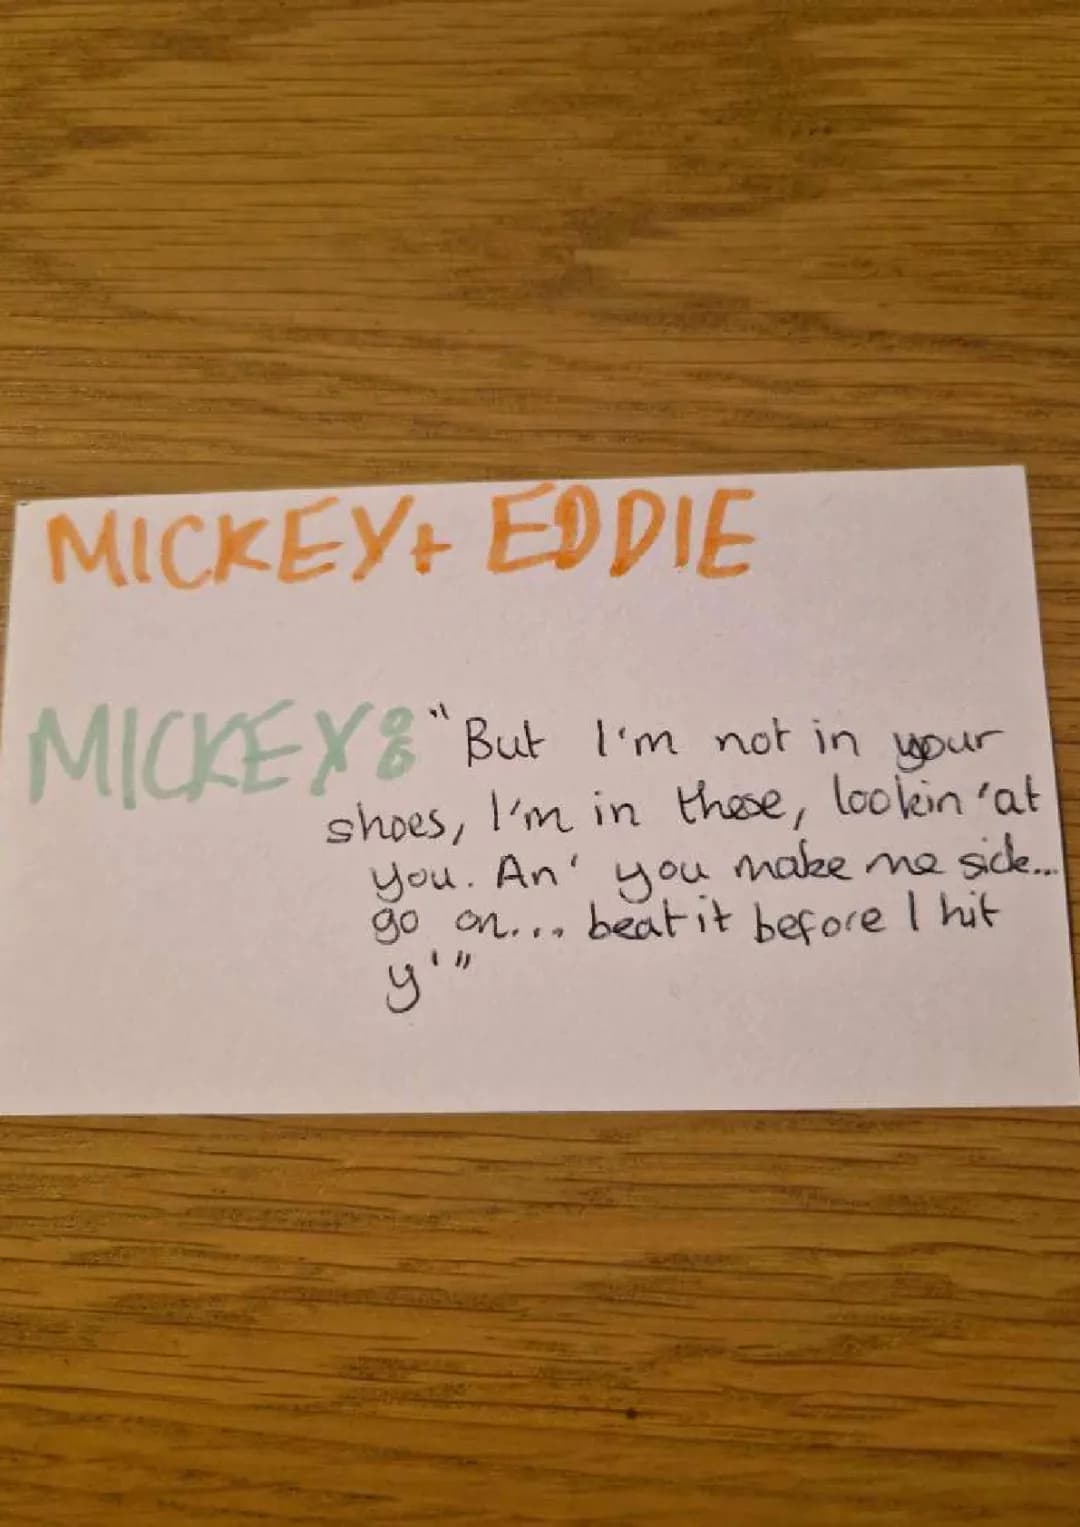 MICKEY+ EDDIE
MICKEY: "But I'm not in your
shoes, I'm in these, lookin 'at
you. An' you make me sick...
go on... beat it before I hit
y'"